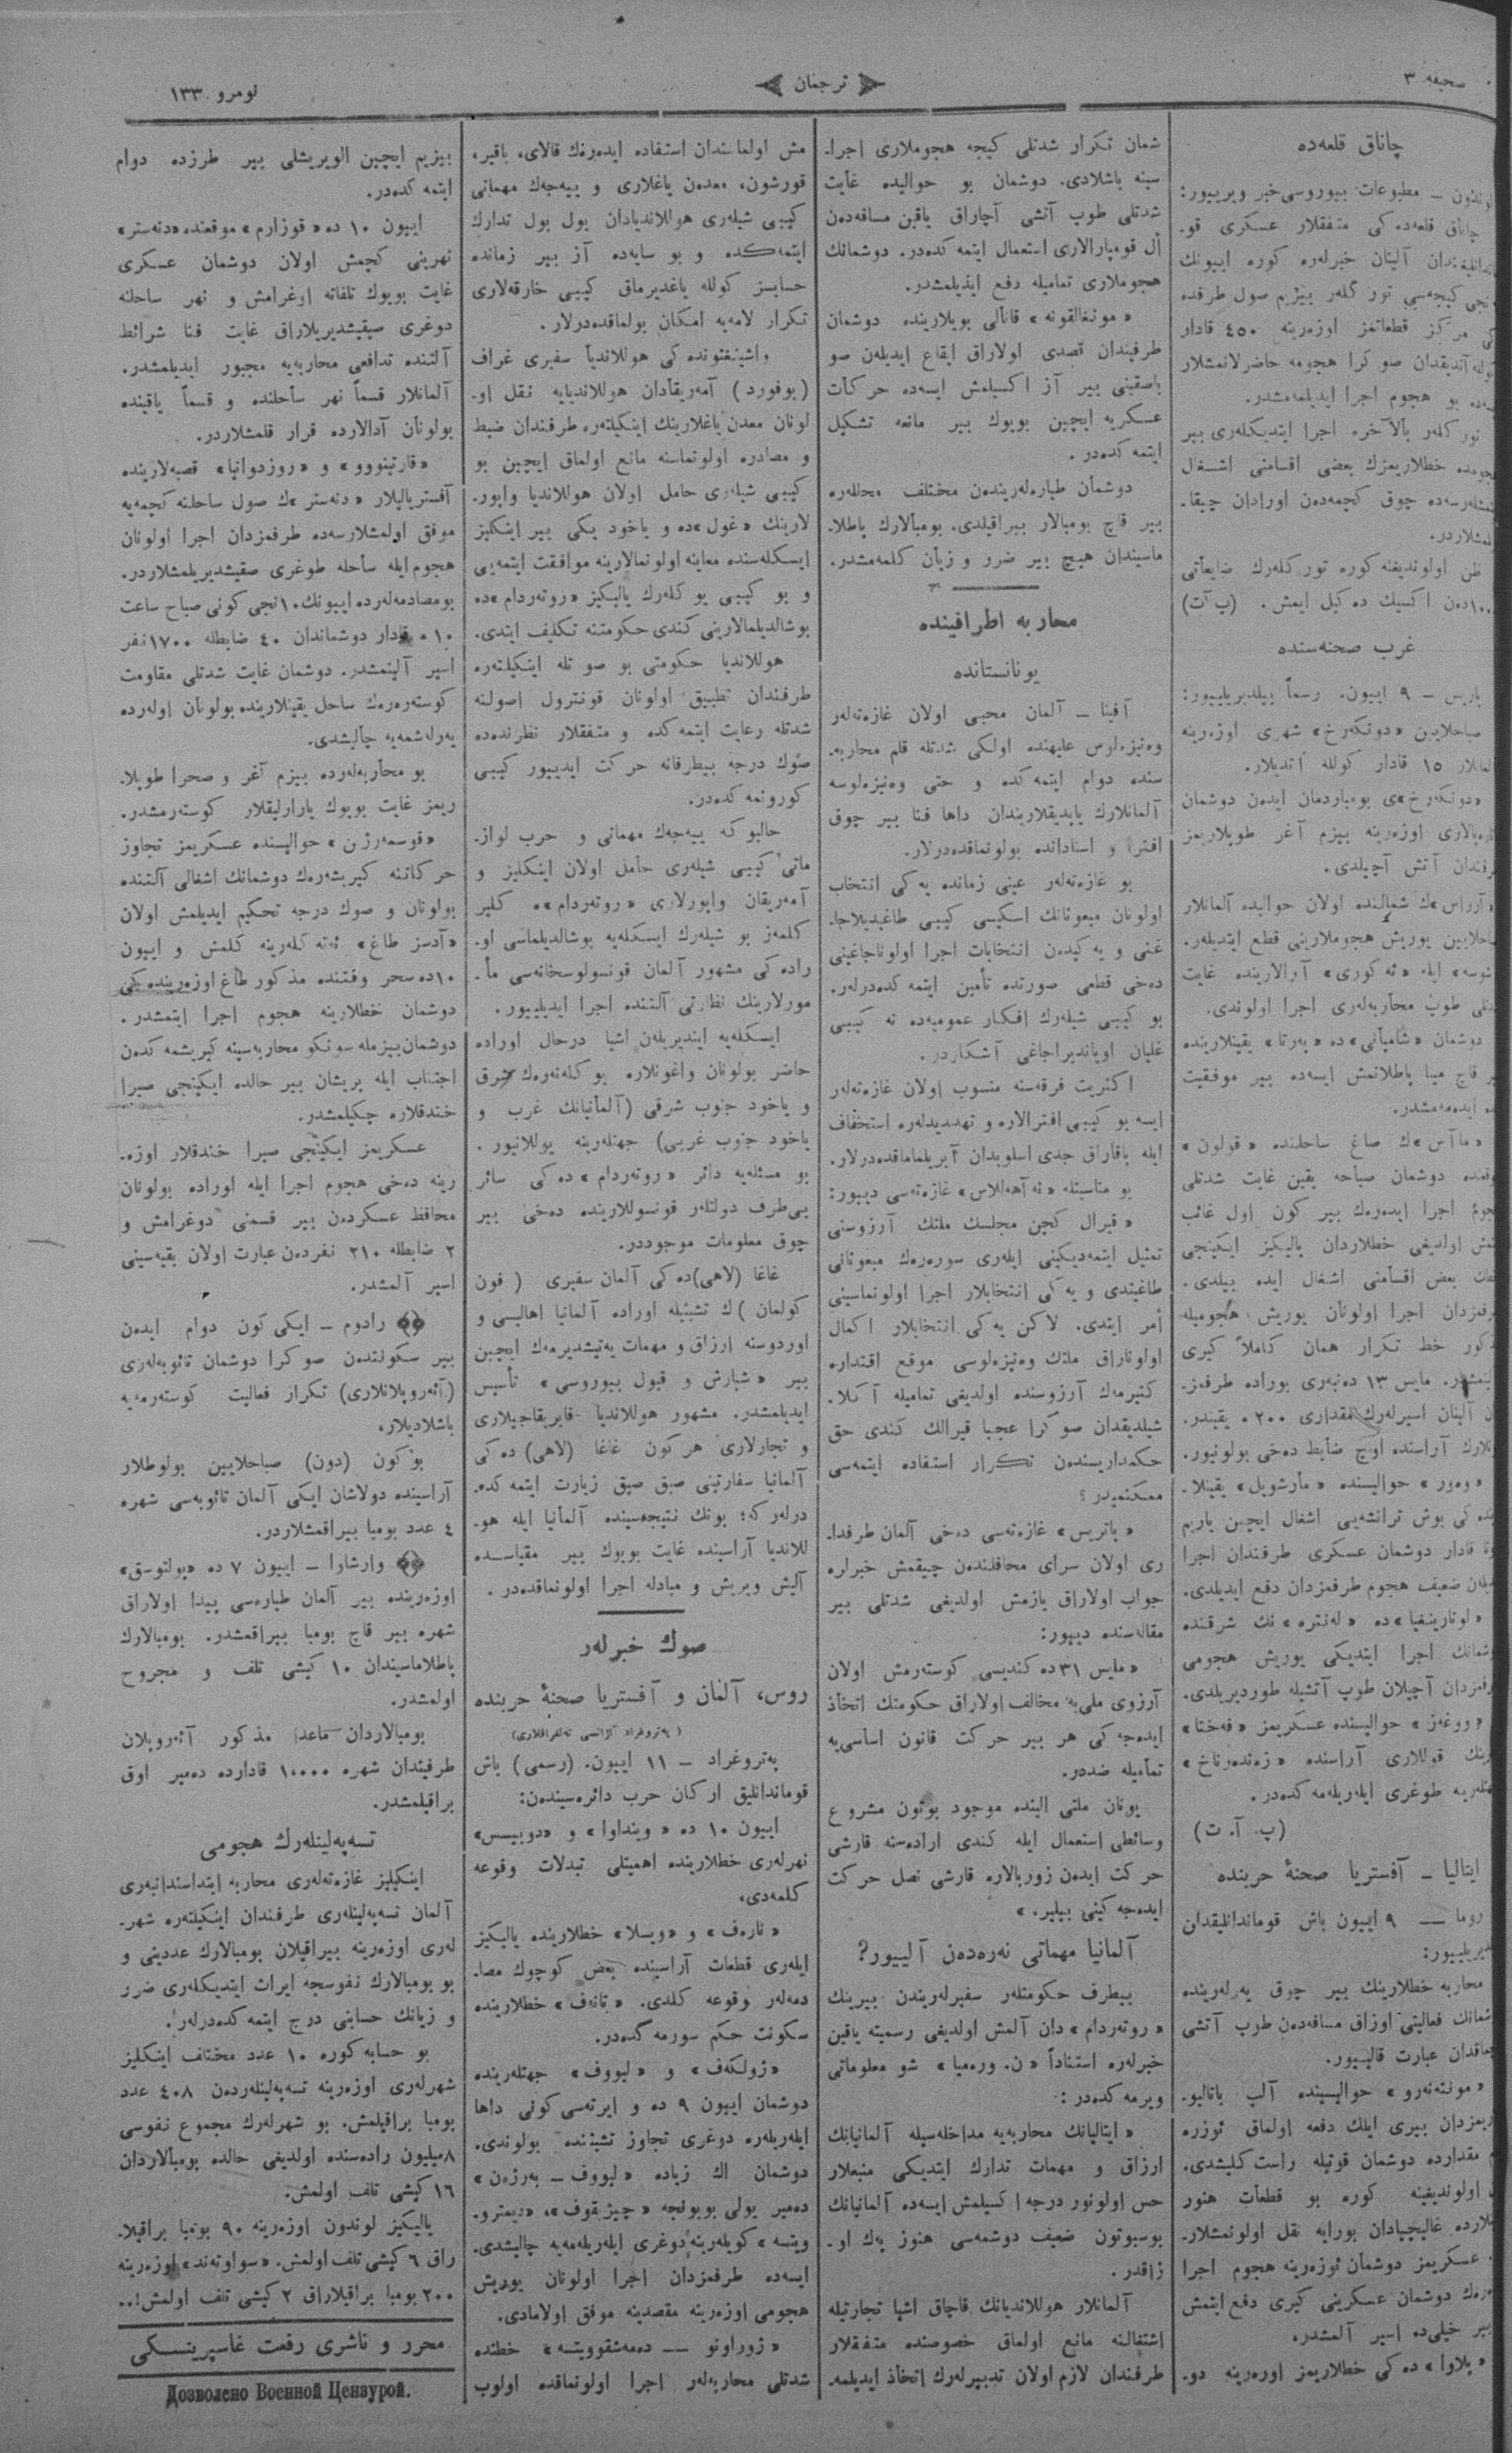 صحیفه ٣
ترجمان
نومرو ١٣٣٠
چاناق قلعه‌ده
لوندون ـ مطبوعات بیوروسی خبر ویرییور:
چاناق قلعه‌ده کی متفقلار عسکری قو-
آلینان خبرلره کوره ایبونك
نجی کیجه‌سی تورکلر بیزیم صول طرفده
کی مرکز قطعاتمز اوزه‌رینه ٤٥٠ قادار
آندیقدان صوکرا هجومه حاضرلانمشلار
بو هجوم اجرا ایدیلمه‌مشدر.
تورکلر بالآخره اجرا ایتدیکلری بیر
خطلاریمزك بعضی اقسامنی اشغال
چوق کچمه‌دن اورادان چیقا-
ظن اولوندیغنه کوره تورکلرك ضایعاتی
دن اکسیك ده‌کیل ایمش. (پ آ ت)
غرب صحنه‌سنده
پاریس ـ ٩ ایبون. رسماً بیلدیریلییور:
صباحلایین «دونکه‌رخ» شهری اوزه‌رینه
١٥ قادار کولله آتدیلار.
«دونکه‌رخ»ی بومباردمان ایدن دوشمان
اوزه‌رینه بیزم آغر طوپلاریمز
آتش آچیلدی.
شمالنده اولان حوالیده آلمانلار
یوریش هجوملارینی قطع ایتدیلر.
ایله «ئه کوری» آرالارینده غایت
طوپ محاربه‌لری اجرا اولوندی.
دوشمان «شامپانی»ده «په‌رتا» یقینلارینده
قاچ مینا پاطلاتمش ایسه‌ده بیر موفقیت
«ماآس»ك صاغ ساحلنده «قولون»
دوشمان صباحه یقین غایت شدتلی
اجرا ایده‌رك بیر کون اول غائب
اولدیغی خطلاردان یالیکیز ایکینجی
بعض اقسامنی اشغال ایده بیلدی.
اجرا اولونان یوریش هجومیله
خط تکرار همان کاملاً کیری
مایس ١٣ ده‌نبه‌ری بوراده طرفمز-
آلینان اسیرلرك مقداری ٢٠٠ ه یقیندر.
آراسنده اوچ ضابط ده‌خی بولونیور.
«وه‌ور» حوالیسنده «مارشویل» یقینلا-
کی بوش ترانشه‌یی اشغال ایچین یاریم
قادار دوشمان عسکری طرفندان اجرا
ضعیف هجوم طرفمزدان دفع ایدیلدی.
«لوتارینغیا»ده «له‌نتره» نك شرقنده
اجرا ایتدیکی یوریش هجومی
آچیلان طوپ آتشیله طوردیریلدی.
«ووغه‌ز» حوالیسنده عسکریمز «فه‌ختا»
قوللاری آراسنده «زه‌نده‌رناخ»
طوغری ایلریله‌مه کده‌در.
(پ. آ. ت)
ایتالیا ـ آفستریا صحنهٔ حربنده
روما — ٩ ایبون باش قوماندانلیقدان
محاربه خطلارینك بیر چوق یه‌رلرینده
فعالیتی اوزاق مسافه‌دن طوپ آتشی
عبارت قالییور.
«مونته‌نه‌رو» حوالیسینده آلپ باتالیو-
بیری ایلك دفعه اولماق ئوزره
مقدارده دوشمان قوتیله راست کلیشدی.
اولوندیغینه کوره بو قطعات هنوز
غالیچیادان بورایه نقل اولونمشلار.
عسکریمز دوشمان ئوزه‌رینه هجوم اجرا
دوشمان عسکرینی کیری دفع ایتمش
بیر خیلی‌ده اسیر آلمشدر.
«پلاوا» ده کی خطلاریمز اوزه‌رینه دو-
شمان تکرار شدتلی کیجه هجوملاری اجرا-
سینه باشلادی. دوشمان بو حوالیده غایت
شدتلی طوپ آتشی آچاراق یاقین مسافه‌دن
أل قومپارالاری استعمال ایتمه کده‌در. دوشمانك
هجوملاری تمامیله دفع ایدیلمشدر.
«مونفالقونه» قانالی بویلارینده دوشمان
طرفیندان قصدی اولاراق ایقاع ایدیلن صو
باصقینی بیر آز اکسیلمش ایسه‌ده حرکات
عسکریه ایچین بویوك بیر مانعه تشکیل
ایتمه کده‌در.
دوشمان طیاره‌لریندن مختلف محللره
بیر قاچ بومبالار بیراقیلدی. بومبالارك پاطلا-
ماسیندان هیچ بیر ضرر و زیان کلمه‌مشدر.
محاربه اطرافینده
یونانستانده
آفینا ـ آلمان محبی اولان غازه‌ته‌لر
وه‌نیزه‌لوس علیهنده اولکی شدتله قلم محاربه-
سنده دوام ایتمه کده و حتی وه‌نیزه‌لوسه
آلمانلارك یاپدیقلاریندان داها فنا بیر چوق
افترا و اسنادانده بولونماقده‌درلار.
بو غازه‌ته‌لر عینی زمانده یه کی انتخاب
اولونان مبعوثانك اسکیسی کیبی طاغیدیلاجا-
غنی و یه کیدن انتخابات اجرا اولوناجاغینی
ده‌خی قطعی صورتده تأمین ایتمه کده‌درلر.
بو کیبی شیلرك افکار عمومیه‌ده نه کیبی
غلیان اویاندیراجاغی آشکاردر.
اکثریت فرقه‌سنه منسوب اولان غازه‌ته‌لر
ایسه بو کیبی افترالاره و تهدیدلره استخفاف
ایله باقاراق جدی اسلوبدان آیریلماماقده‌درلار.
بو مناسبتله «ئه آهه‌للاس» غازه‌ته‌سی دیییور:
«قیرال کچن مجلسك ملتك آرزوسنی
تمثیل ایتمه‌دیکینی ایلری سوره‌رك مبعوثانی
طاغیتدی و یه کی انتخابلار اجرا اولونماسینی
أمر ایتدی. لاکن یه کی انتخابلار اکمال
اولوناراق ملتك وه‌نیزه‌لوسی موقع اقتداره
کتیرمه‌ك آرزوسنده اولدیغی تمامیله آکلا-
شیلدیقدان صوکرا عجبا قیرالك کندی حق
حکمداریسندن تکرار استفاده ایتمه‌سی
ممکنمیدر؟
«پاتریس» غازه‌ته‌سی ده‌خی آلمان طرفدا-
ری اولان سرای محافلندن چیقمش خبرلره
جواب اولاراق یازمش اولدیغی شدتلی بیر
مقاله‌سنده دیییور:
«مایس ٣١ ده کندیسی کوسته‌رمش اولان
آرزوی ملی‌یه مخالف اولاراق حکومتك اتخاذ
ایده‌جه کی هر بیر حرکت قانون اساسی‌یه
تمامیله ضددر.
یونان ملتی الینده موجود بوتون مشروع
وسائطی استعمال ایله کندی اراده‌سنه قارشی
حرکت ایدن زوربالاره قارشی نصل حرکت
ایده‌جه کینی بیلیر.»
آلمانیا مهماتی نه‌ره‌ده‌ن آلییور؟
بیطرف حکومتلر سفیرلریندن بیرینك
«روته‌ردام» دان آلمش اولدیغی رسمیته یاقین
خبرلره استناداً «ن. وره‌میا» شو معلوماتی
ویرمه کده‌در:
«ایتالیانك محاربه‌یه مداخله‌سیله آلمانیانك
ارزاق و مهمات تدارك ایتدیکی منبعلار
حس اولونور درجه اکسیلمش ایسه‌ده آلمانیانك
بوسبوتون ضعیف دوشمه‌سی هنوز پك او-
زاقدر.
آلمانلار هوللاندیانك قاچاق اشیا تجارتیله
اشتغالنه مانع اولماق خصوصنده متفقلار
طرفندان لازم اولان تدبیرلرك اتخاذ ایدیلمه-
مش اولماسندان استفاده ایده‌رك قالای، باقیر،
قورشون، معدن یاغلاری و ییه‌جه‌ك مهماتی
کیبی شیلری هوللاندیادان بول بول تدارك
ایتمه‌کده و بو سایه‌ده آز بیر زمانده
حسابسز کولله یاغدیرماق کیبی خارقه‌لاری
تکرارلامه‌یه امکان بولماقده‌درلار.
واشینغتونده کی هوللاندیا سفیری غراف
(بوفورد) آمه‌ریقادان هوللاندیایه نقل او-
لونان معدن یاغلارینك اینکیلتره طرفندان ضبط
و مصادره اولونماسنه مانع اولماق ایچین بو
کیبی شیلری حامل اولان هوللاندیا واپور-
لارینك «غول»ده و یاخود یکی بیر اینکلیز
ایسکله‌سنده معاینه اولونمالارینه موافقت ایتمه‌یی
و بو کیبی یوکلرك یالیکیز «روته‌ردام»ده
بوشالدیلمالارینی کندی حکومتنه تکلیف ایتدی.
هوللاندیا حکومتی بو صو تله اینکیلتره
طرفندان تطبیق اولونان قونترول اصولنه
شدتله رعایت ایتمه کده و متفقلار نظرنده‌ده
صوك درجه بیطرفانه حرکت ایدییور کیبی
کورونمه کده‌در.
حالبو که ییه‌جه‌ك مهماتی و حرب لواز-
ماتی کیبی شیلری حامل اولان اینکلیز و
آمه‌ریقان واپورلاری «روته‌ردام»ه کلیر
کلمه‌ز بو شیلرك ایسکله‌یه بوشالدیلماسی او-
راده کی مشهور آلمان قونسولوسخانه‌سی مأ-
مورلارینك نظارتی آلتنده اجرا ایدیلییور.
ایسکله‌یه ایندیریلن اشیا درحال اوراده
حاضر بولونان واغونلاره یوکله‌نه‌رك شرق
و یاخود جنوب شرقی (آلمانیانك غرب و
یاخود جنوب غربی) جهتلرینه یوللانیور.
بو مسئله‌یه دائر «روته‌ردام» ده کی سائر
بی‌طرف دولتلر قونسوللارینده ده‌خی بیر
چوق معلومات موجوددر.
غاغا (لاهی)ده کی آلمان سفیری (فون
کولمان)ك تشبثیله اوراده آلمانیا اهالیسی و
اوردوسنه ارزاق و مهمات یه‌تیشدیرمه‌ك ایچین
بیر «شپارش و قبول بیوروسی» تأسیس
ایدیلمشدر. مشهور هوللاندیا فابریقاجیلاری
و تجارلاری هر کون غاغا (لاهی) ده کی
آلمانیا سفارتینی صیق صیق زیارت ایتمه کده-
درلر که؛ بونك نتیجه‌سینده آلمانیا ایله هو-
للاندیا آراسینده غایت بویوك بیر مقیاسده
آلیش ویریش و مبادله اجرا اولونماقده‌در.
صوك خبرلر
روس، آلمان و آفستریا صحنهٔ حربنده
(په‌تروغراد آژانسی ته‌لغرافلاری)
په‌تروغراد ـ ١١ ایبون. (رسمی) باش
قوماندانلیق ارکان حرب دائره‌سیندن:
ایبون ١٠ ده «وینداوا» و «دوبیسس»
نهرلری خطلارینده اهمیتلی تبدلات وقوعه
کلمه‌دی.
«ناره‌ف» و «ویسلا» خطلارینده یالیکیز
ایلری قطعات آراسینده بعض کوچوك مصا-
دمه‌لر وقوعه کلدی. «تانه‌ف» خطلارینده
سکونت حکم سورمه کده‌در.
«ژولکه‌ف» و «لیووف» جهتلرینده
دوشمان ایبون ٩ ده و ایرته‌سی کونی داها
ایلریلره دوغری تجاوز تشبثنده بولوندی.
دوشمان اك زیاده «لیووف ـ به‌رژه‌ن»
ده‌میر یولی بویونجه «چیژیقوف»، «دیمترو-
ویتسه» کویلرینه دوغری ایلریله‌مه‌یه چالیشدی.
ایسه‌ده طرفمزدان اجرا اولونان یوریش
هجومی اوزه‌رینه مقصدینه موفق اولامادی.
«ژوراونو — ده‌مه‌شقوویتسه» خطنده
شدتلی محاربه‌لر اجرا اولونماقده اولوب
بیزیم ایچین الویریشلی بیر طرزده دوام
ایتمه کده‌در.
ایبون ١٠ ده «قوزارم» موقعنده «دنه‌ستر»
نهرینی کچمش اولان دوشمان عسکری
غایت بویوك تلفاته اوغرامش و نهر ساحلنه
دوغری صیقیشدیریلاراق غایت فنا شرائط
آلتنده تدافعی محاربه‌یه مجبور ایدیلمشدر.
آلمانلار قسماً نهر ساحلنده و قسماً یاقینده
بولونان آدالارده قرار قلمشلاردر.
«قارتینووو» و «روزدوانیا» قصبه‌لارینده
آفستریالیلار «دنه‌ستر»ك صول ساحلنه کچمه‌یه
موفق اولمشلارسه‌ده طرفمزدان اجرا اولونان
هجوم ایله ساحله طوغری صقیشدیریلمشلاردر.
بو مصادمه‌لرده ایبونك ١٠نجی کونی صباح ساعت
١٠ه قادار دوشماندان ٤٠ ضابطله ١٧٠٠ نفر
اسیر آلینمشدر. دوشمان غایت شدتلی مقاومت
کوسته‌ره‌رك ساحل یقینلارینده بولونان اولرده
یه‌رلشمه‌یه چالیشدی.
بو محاربه‌لرده بیزم آغر و صحرا طوپلا-
ریمز غایت بویوك یارارلیقلار کوسته‌رمشدر.
«قوسمه‌رژن» حوالیسنده عسکریمز تجاوز
حرکاتنه کیریشه‌رك دوشمانك اشغالی آلتنده
بولونان و صوك درجه تحکیم ایدیلمش اولان
«آدسز طاغ» ئه‌ته کلرینه کلمش و ایبون
١٠ ده سحر وقتنده مذکور طاغ اوزه‌رینده کی
دوشمان خطلارینه هجوم اجرا ایتمشدر.
دوشمان بیزمله سونکو محاربه‌سینه کیریشمه کدن
اجتناب ایله پریشان بیر حالده ایکینجی صیرا
خندقلاره چکیلمشدر.
عسکریمز ایکینجی صیرا خندقلار اوزه-
رینه ده‌خی هجوم اجرا ایله اوراده بولونان
محافظ عسکردن بیر قسمنی دوغرامش و
٢ ضابطله ٢١٠ نفردن عبارت اولان بقیه‌سینی
اسیر آلمشدر.
رادوم ـ ایکی کون دوام ایدن
بیر سکونتدن صوکرا دوشمان تائوبه‌لری
(آئه‌روپلانلاری) تکرار فعالیت کوسته‌رمه‌یه
باشلادیلار.
بو کون (دون) صباحلایین بولوطلار
آراسینده دولاشان ایکی آلمان تائوبه‌سی شهره
٤ عدد بومبا بیراقمشلاردر.
وارشاوا ـ ایبون ٧ ده «پولتوسق»
اوزه‌رینده بیر آلمان طیاره‌سی پیدا اولاراق
شهره بیر قاچ بومبا بیراقمشدر. بومبالارك
پاطلاماسیندان ١٠ کیشی تلف و مجروح
اولمشدر.
بومبالاردان ماعدا مذکور آئه‌روپلان
طرفیندان شهره ١٠،٠٠٠ قادارده ده‌میر اوق
براقیلمشدر.
تسه‌په‌لینلرك هجومی
اینکلیز غازه‌ته‌لری محاربه ابتداسندانبه‌ری
آلمان تسه‌په‌لینلری طرفندان اینکیلتره شهر-
لری اوزه‌رینه بیراقیلان بومبالارك عددینی و
بو بومبالارك نفوسجه ایراث ایتدیکلری ضرر
و زیانك حسابنی درج ایتمه کده‌درلر.
بو حسابه کوره ١٠ عدد مختلف اینکلیز
شهرلری اوزه‌رینه تسه‌په‌لینلردن ٤٠٨ عدد
بومبا براقیلمش. بو شهرلرك مجموع نفوسی
٨ میلیون راده‌سنده اولدیغی حالده بومبالاردان
١٦ کیشی تلف اولمش.
یالیکیز لوندون اوزه‌رینه ٩٠ بومبا براقیلا-
راق ٦ کیشی تلف اولمش. «سواوته‌ند» اوزه‌رینه
٢٠٠ بومبا براقیلاراق ٢ کیشی تلف اولمش!..
محرر و ناشری رفعت غاسپرینسکی
Дозволено Военной Цензурой.